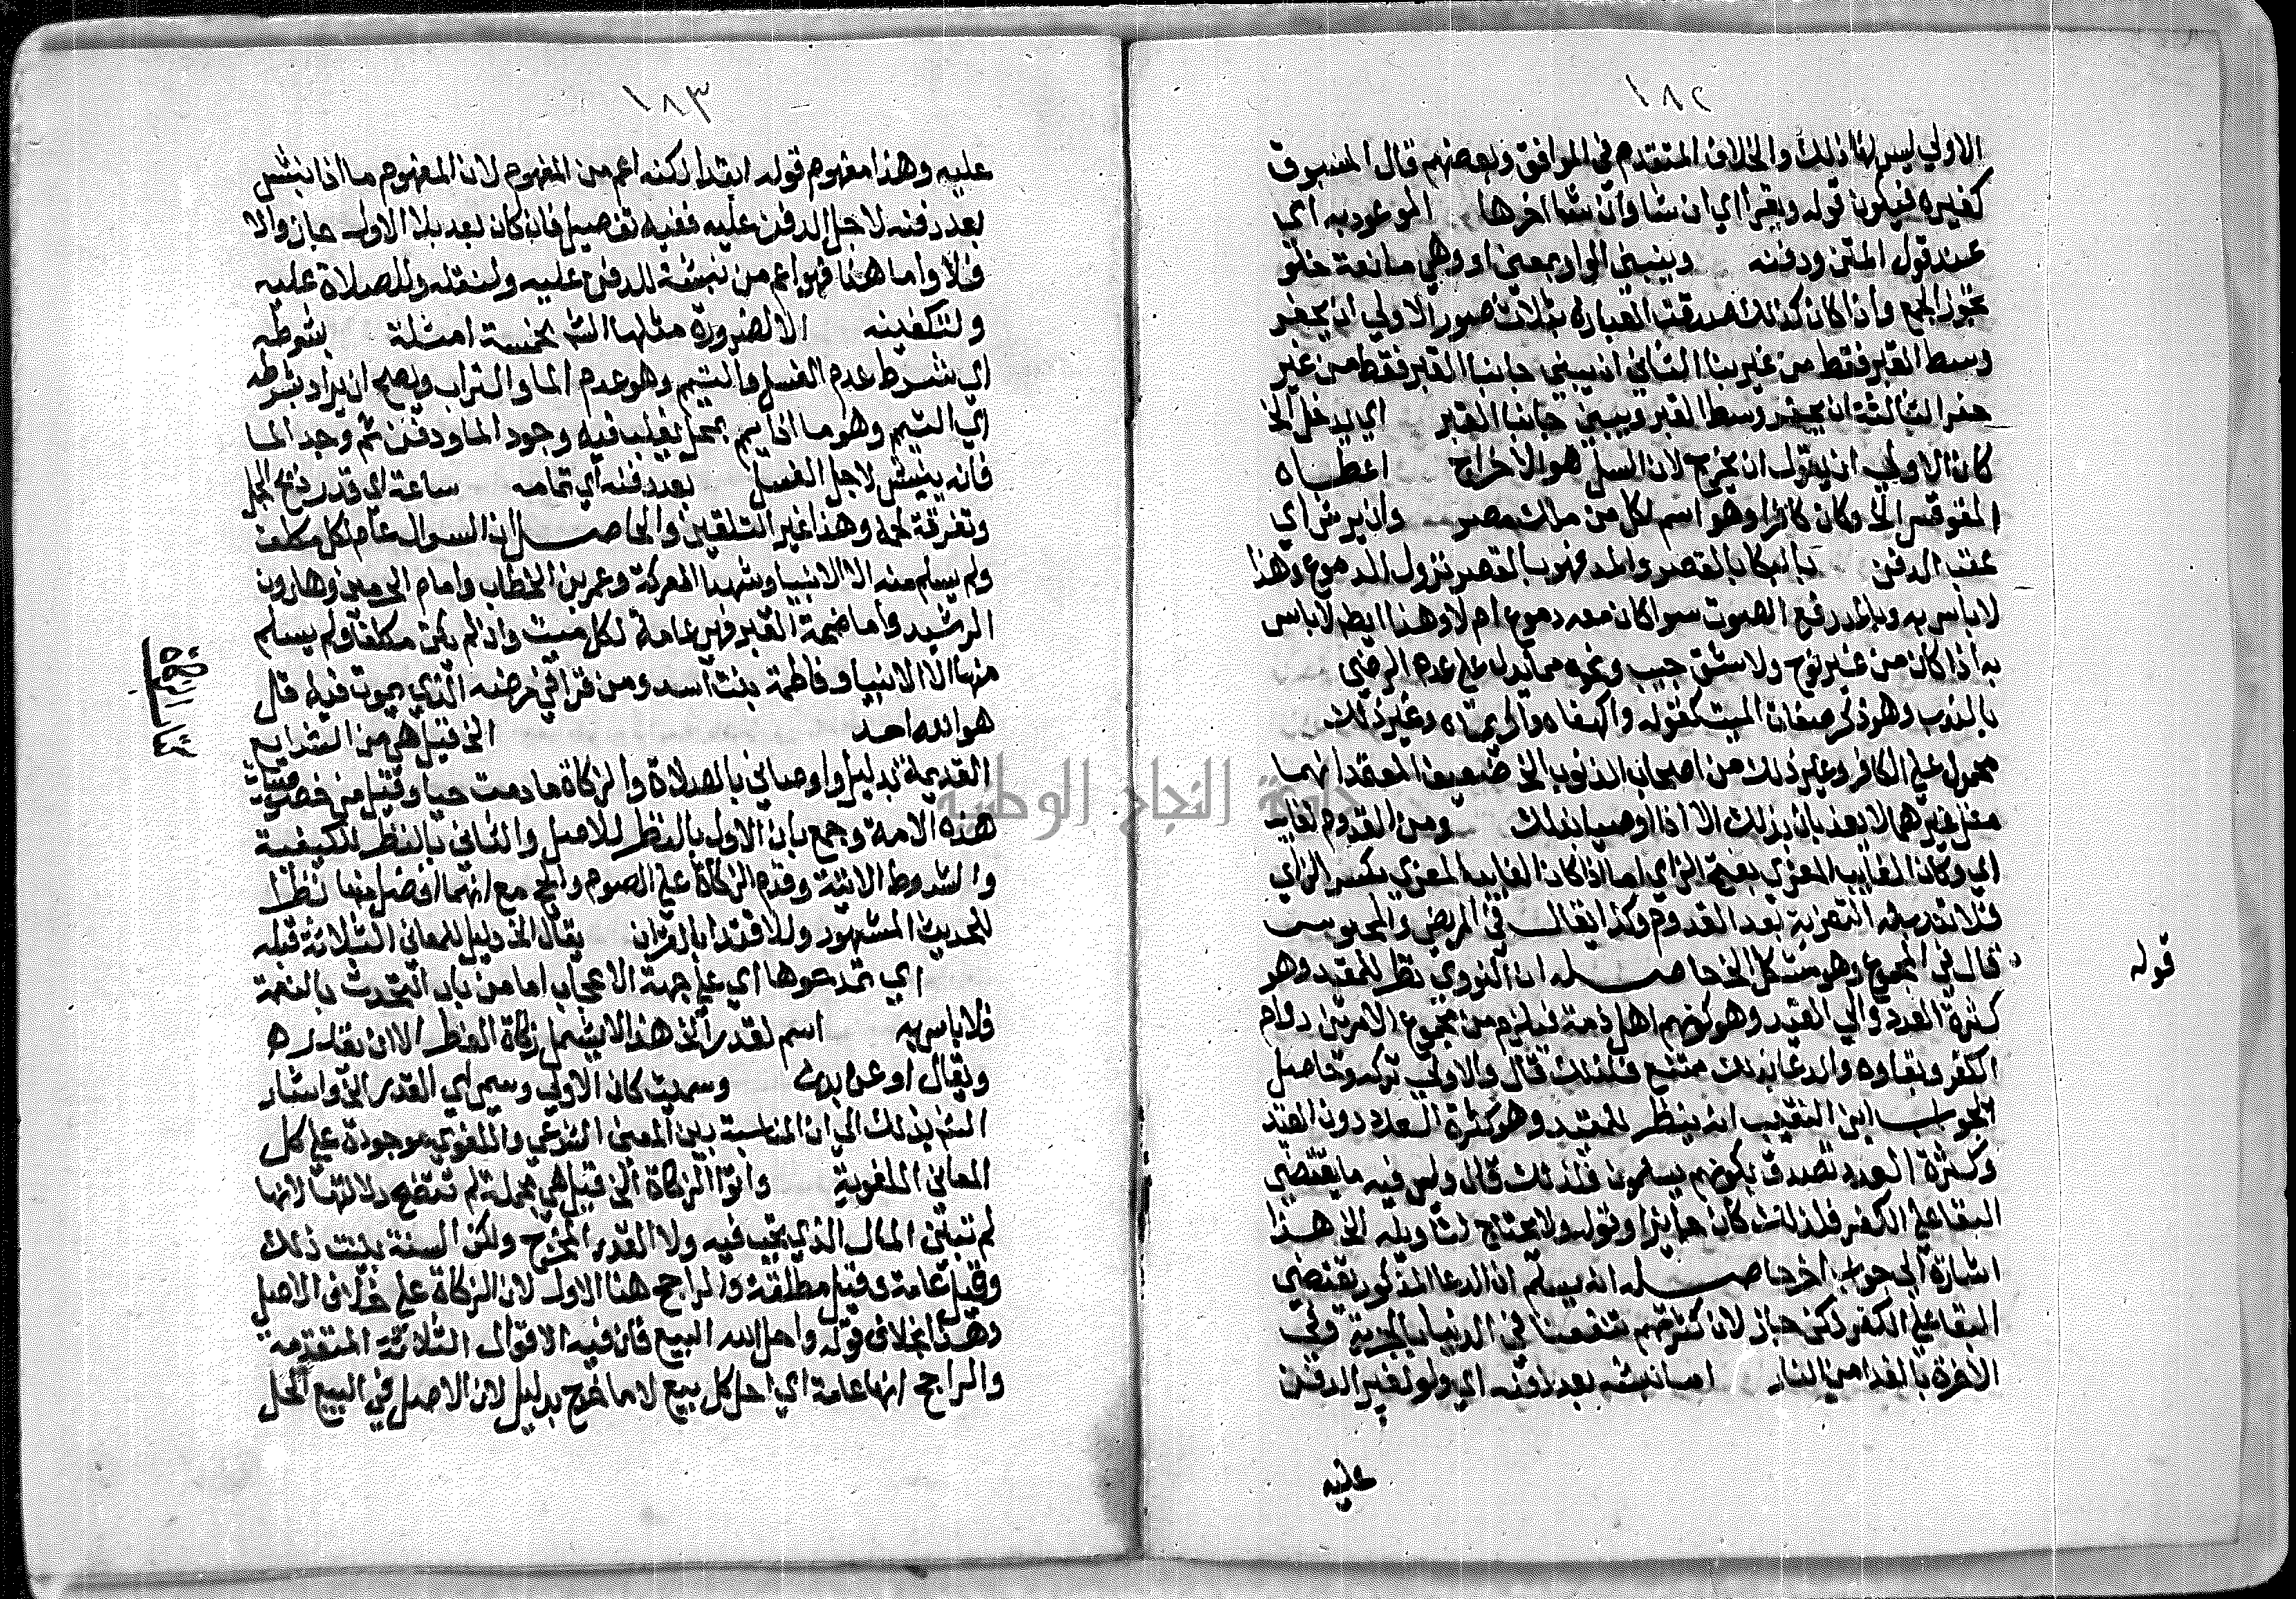 ١٨٢
الاولي ليس لها ذلك والخلاف المتقدم في الموافق وبعضهم قال المسبوق
كغيره فيكون قوله ويقرأ اي ان شا وان شا اخرها الموعود به اي
عند قول المتن ودفنه ويبني الواو بمعني او وهي مانعة خلو
تجوز الجمع واذا كان كذلك صدقت العبارة بثلاث صور الاولي ان يحفر
وسط القبر فقط من غير بنا الثاني ان يبني جانبا القبر فقط من غير
حفر الثالثة ان يحفر وسط القبر ويبني جانبا القبر اي يدخل الخ
كان الاولي ان يقول ان يخرج لان السل هو الاخراج اعطاه
المقوقس الخ وكان كافرا وهو اسم لكل من ملك مصر وان يرش اي
عقب الدفن بالبكا بالقصر والمد فهو بالقصر نزول الدموع وهذا
لا باس به وبالمد رفع الصوت سوا كان معه دموع ام لا وهذا ايضا لا باس
به اذا كان من غير نوح ولا شق جيب ونحوه مما يدل علي عدم الرضي
بالندب وهو ذكر صفات الميت كقوله واكهفاه واكريماه وغير ذلك
محمول علي الكافر وغير ذلك من اصحاب الذنوب الخ ضعيف المعتمد انهما
مثل غيرهما لا يعذبان بذلك الا اذا اوصيا بذلك ومن القدوم لغائب
اي وكان الغايب المعزي بفتح الزاي اما اذا كان الغايب المعزي بكسر الزاي
فلا تندب له التعزية بعد القدوم وكذا يقال في المريض والمحبوس
قال في المجموع وهو مشكل الخ حاصله ان النووي نظر للمقيد وهو
قوله
كثرة العدد والي القيد وهو كونهم اهل ذمة فيلزم من مجموع الامرين دوام
الكفر وبقاوه والدعا بذلك ممتنع فلذلك قال والاولي تركه وحاصل
الجواب ابن النقيب انه ينظر للمقيد وهو كثرة العدد دون القيد
وكثرة العدد تصدق بكونهم يسلمون فلذلك قال وليس فيه ما يقتضي
البقا علي الكفر فلذلك كان جائزا وقوله ولا يحتاج لتاويله الخ هذا
اشارة الي جواب اخر حاصله انه يسلم ان الدعا المذكور يقتضي
البقا علي الكفر لكن جاز لان كثرتهم تنفعنا في الدنيا بالجزية وفي
الاخرة بالفدا من النار اما نبشه بعد دفنه اي ولو لغير الدفن
عليه
١٨٣
عليه وهذا مفهوم قوله ابتدا لكنه اعم من المفهوم لان المفهوم ما اذا نبش
بعد دفنه لاجل الدفن عليه ففيه تفصيل فان كان بعد بلا الاول جاز والا
فلا واما هنا فهو اعم من نبشه للدفن عليه ولنقله وللصلاة عليه
ولتكفينه الا لضرورة مثلها الش بخمسة امثلة بشرطه
اي شرط عدم الغسل والتيمم وهو عدم الما والتراب ويصح ان يراد بشرطه
اي التيمم وهو ما اذا يمم بمحل يغلب فيه وجود الما ودفن ثم وجد الما
فانه ينبش لاجل الغسل بعد دفنه اي تمامه ساعة اي قدر ذبح الجمل
وتفرقة لحمه وهذا غير التلقين والحاصل ان السوال عام لكل مكلف
ولم يسلم منه الا الانبيا وشهيد المعركة وعمر بن الخطاب وامام الحرمين وهارون
الرشيد واما ضمة القبر فهي عامة لكل ميت وان لم يكن مكلفا ولم يسلم
منها الا الانبيا وفاطمة بنت اسد ومن قرا في مرضه الذي يموت فيه قل
هو الله احد الخ قيل هي من الشرايع
كتاب الزكاة
القديمة بدليل واوصاني بالصلاة والزكاة ما دمت حيا وقيل من خصوصيات
هذه الامة وجمع بان الاول بالنظر للاصل والثاني بالنظر للكيفية
والشروط الاتية وقدم الزكاة علي الصوم والحج مع انهما افضل منها نظرا
للحديث المشهور وللاقتدا بالقران يقال الخ دليل للمعاني الثلاثة قبله
اي تمدحوها اي علي جهة الاعجاب اما من باب التحدث بالنعمة
فلا باس به اسم لقدر الخ هذا لا يشمل زكاة الفطر الا ان يقدر ه
ويقال او عن بدن وسميت كان الاولي وسمي اي القدر الخ واشار
الش بذلك الي ان المناسبة بين المعني الشرعي واللغوي موجودة علي كل
المعاني اللغوية واتوا الزكاة الخ قيل هي مجملة لم تتضح دلالتها لانها
لم تبين المال الذي يجب فيه ولا القدر المخرج ولكن السنة بينت ذلك
وقيل عامة وقيل مطلقة والراجح هنا الاول لان الزكاة علي خلاف الاصل
وهذا بخلاف قوله واحل الله البيع فان فيه الاقوال الثلاثة المتقدمة
والراجح انها عامة اي احل كل بيع لا ما خرج بدليل لان الاصل في البيع الحل
جامعة النجاح الوطنية